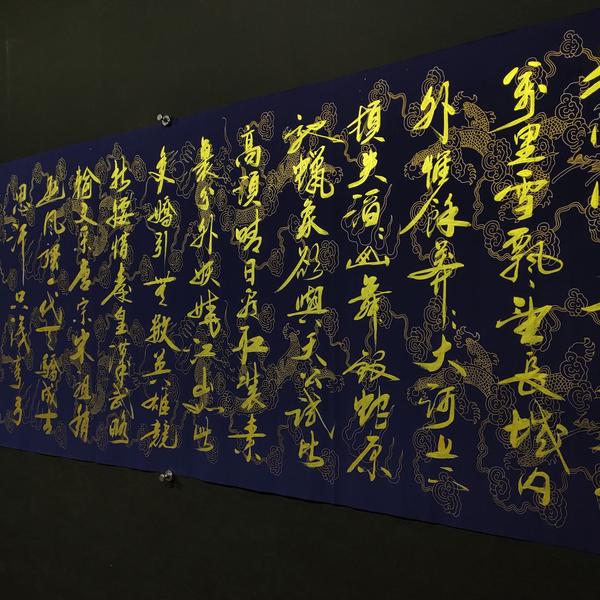 萬里雪飘々望長城内
外惟餘莽々大河上下
頓失滔々山舞銀蛇原
驰蠟象欲與天公試比
高須晴日看红装素
裹分外妖娆江山如此
多嬌引無数英雄競
折腰惜秦皇漢武略
輸文采唐宗宋祖稍
遜風騷一代天驕成吉
思汗只識弯弓